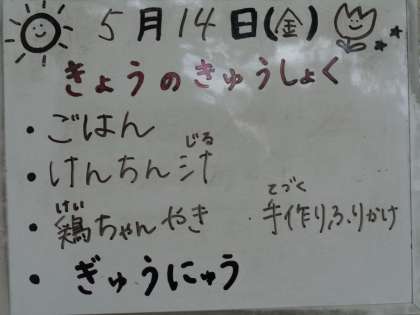 5月14日(金)
きょうのきゅうしょく
・ごはん
・けんちん汁
じる
・鶏ちゃんやき
けい
・手作りふりかけ
てづく
・ぎゅうにゅう